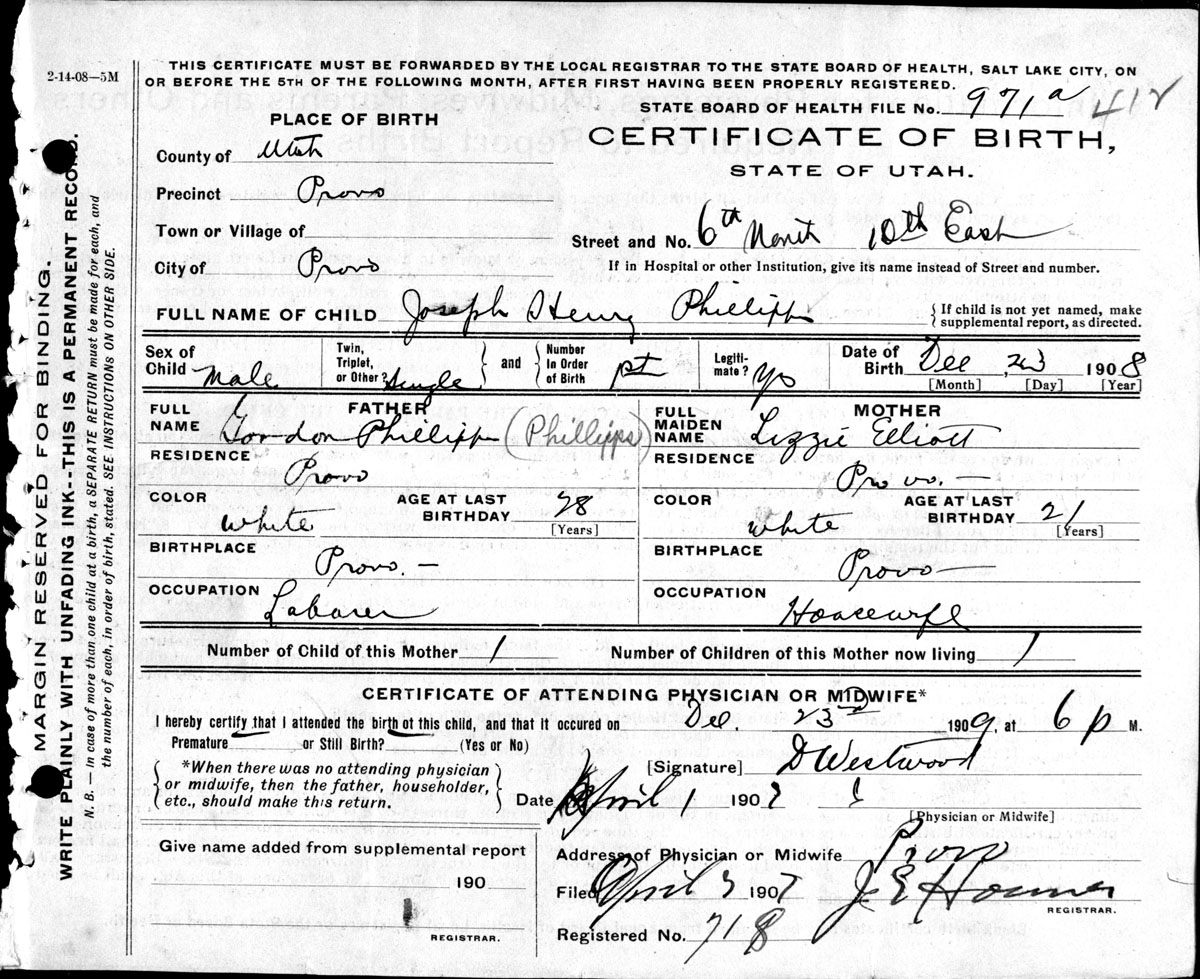 2-14-08—5M
THIS CERTIFICATE MUST BE FORWARDED BY THE LOCAL REGISTRAR TO THE STATE BOARD OF HEALTH, SALT LAKE CITY, ON
OR BEFORE THE 5TH OF THE FOLLOWING MONTH, AFTER FIRST HAVING BEEN PROPERLY REGISTERED.
STATE BOARD OF HEALTH FILE No. 971a 412
PLACE OF BIRTH
CERTIFICATE OF BIRTH,
STATE OF UTAH.
County of Utah
Precinct Provo
Town or Village of
Street and No. 6th 10th East
City of Provo
If in Hospital or other Institution, give its name instead of Street and number.
FULL NAME OF CHILD Joseph Henry Phillipps
{If child is not yet named, make
supplemental report, as directed.
Sex of Child Male
Twin, Triplet, or Other? Single
and
Number In Order of Birth
Legitimate?
Date of Birth Dec 23 1908
[Month] [Day] [Year]
FATHER
FULL NAME Gordon Phillipps (Phillipps)
RESIDENCE Provo
COLOR White
AGE AT LAST BIRTHDAY 28
[Years]
BIRTHPLACE Provo.—
OCCUPATION Laborer
MOTHER
FULL MAIDEN NAME Lizzie Elliott
RESIDENCE Provo.—
COLOR White
AGE AT LAST BIRTHDAY 21
[Years]
BIRTHPLACE Provo—
OCCUPATION
Number of Child of this Mother 1
Number of Children of this Mother now living 1
CERTIFICATE OF ATTENDING PHYSICIAN OR MIDWIFE*
I hereby certify that I attended the birth of this child, and that it occured on Dec. 23rd 1909, at 6 p M.
Premature or Still Birth? (Yes or No)
*When there was no attending physician
or midwife, then the father, householder,
etc., should make this return.
[Signature] D Westwood
Date April 1 190
[Physician or Midwife]
Give name added from supplemental report
190
REGISTRAR.
Address of Physician or Midwife Provo
Filed April 3 190
REGISTRAR.
Registered No. 718
MARGIN RESERVED FOR BINDING.
WRITE PLAINLY WITH UNFADING INK--THIS IS A PERMANENT RECORD.
N. B.—In case of more than one child at a birth, a SEPARATE RETURN must be made for each, and
the number of each, in order of birth, stated. SEE INSTRUCTIONS ON OTHER SIDE.